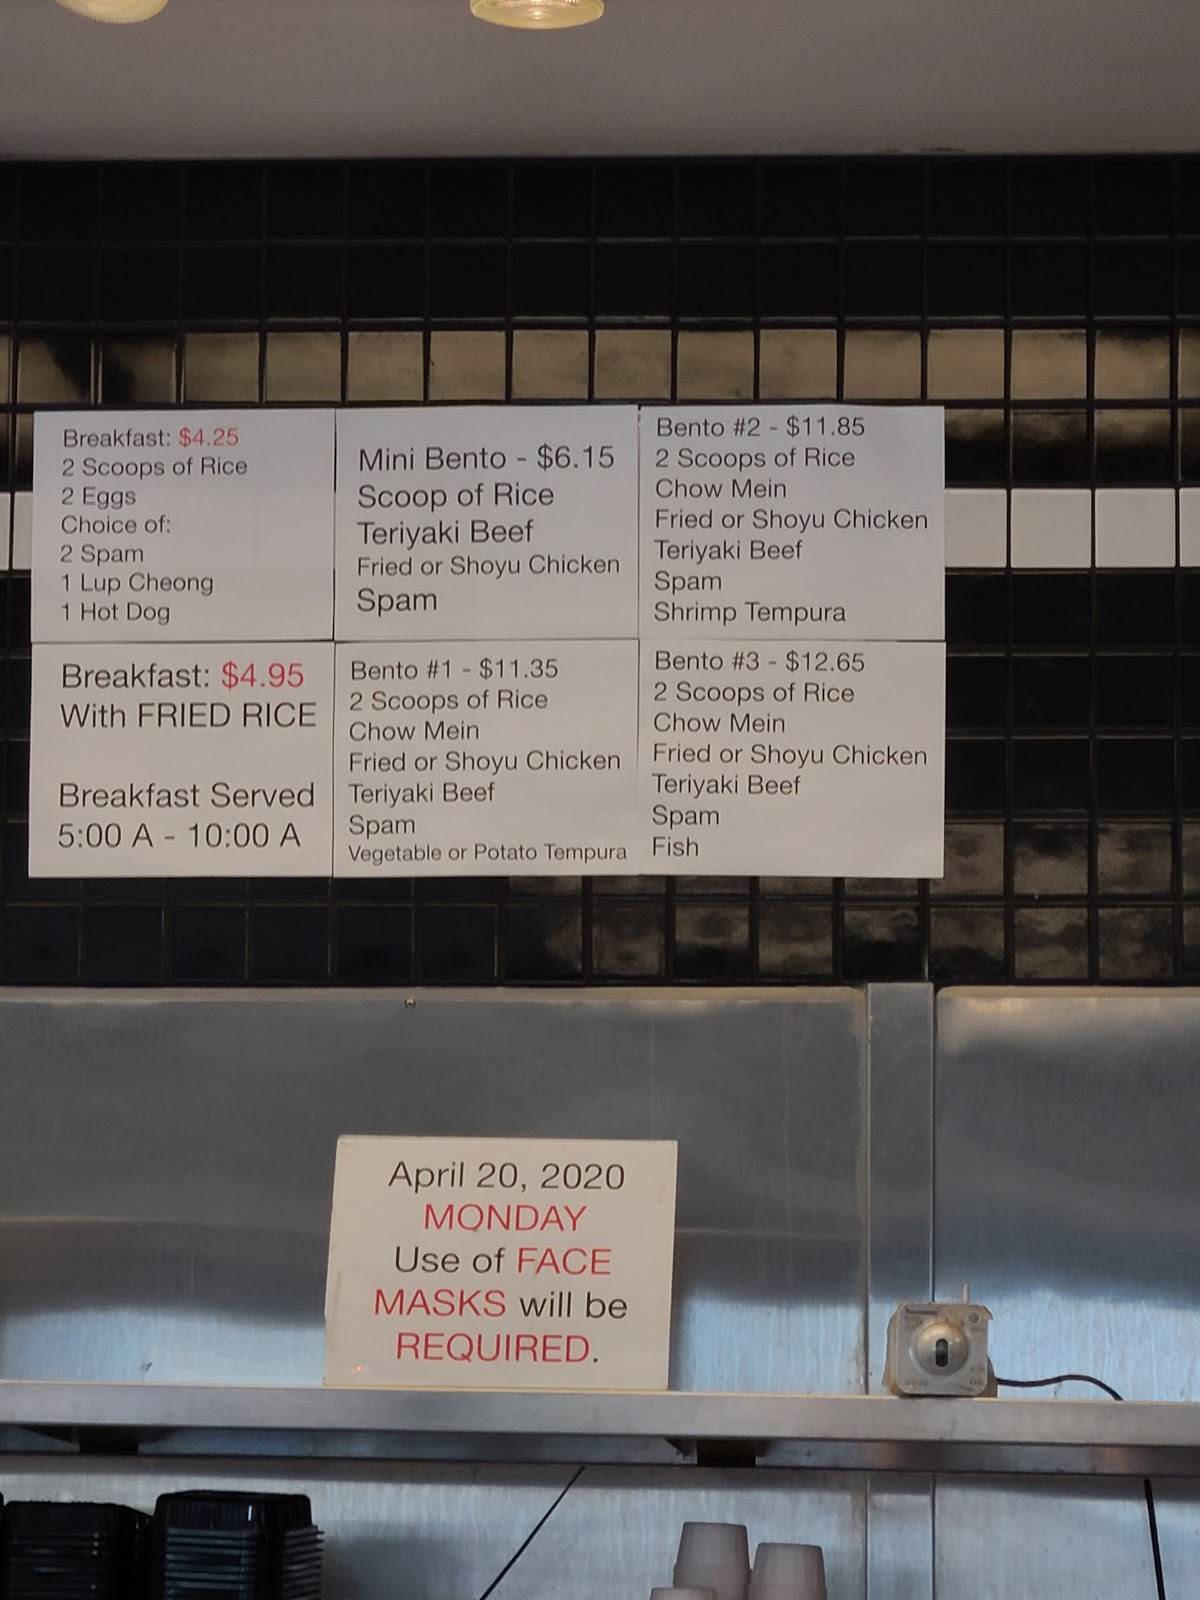 Breakfast: $4.25
2 Scoops of Rice
2 Eggs
Choice of:
2 Spam
1 Lup Cheong
1 Hot Dog
Mini Bento - $6.15
Scoop of Rice
Teriyaki Beef
Fried or Shoyu Chicken
Spam
Bento #2 - $11.85
2 Scoops of Rice
Chow Mein
Fried or Shoyu Chicken
Teriyaki Beef
Spam
Shrimp Tempura
Breakfast: $4.95
With FRIED RICE
Breakfast Served
5:00 A - 10:00 A
Bento #1 - $11.35
2 Scoops of Rice
Chow Mein
Fried or Shoyu Chicken
Teriyaki Beef
Spam
Vegetable or Potato Tempura
Bento #3 - $12.65
2 Scoops of Rice
Chow Mein
Fried or Shoyu Chicken
Teriyaki Beef
Spam
Fish
April 20, 2020
MONDAY
Use of FACE
MASKS will be
REQUIRED.